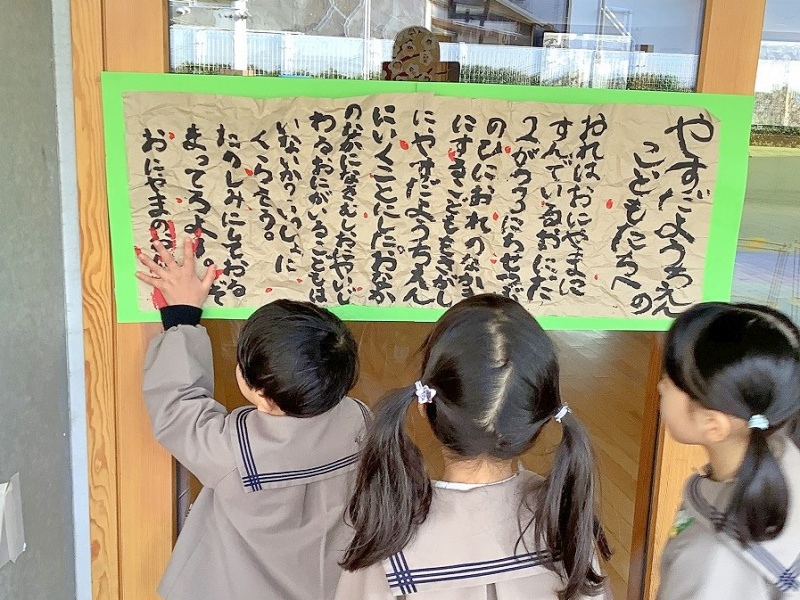 やすだようちえんの
こどもたちへ
おれはおにやまに
すんでいるおにだ
2がつ3にちせつぶ
のひにおれのなかま
にすきこどもをさがし
にやすだようちえん
にいくことにしたおなか
のなかになきむしおにやいじ
わるおにがいるこどもは
いないか?いっしょに
くらそう。
たのしみにしておる
まってろよ。ぞ
おにやまの